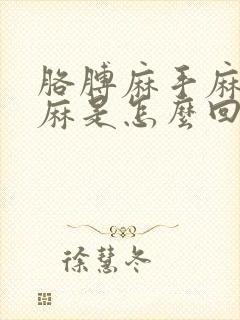 胳膊麻手麻
麻是怎麼回
徐慧冬